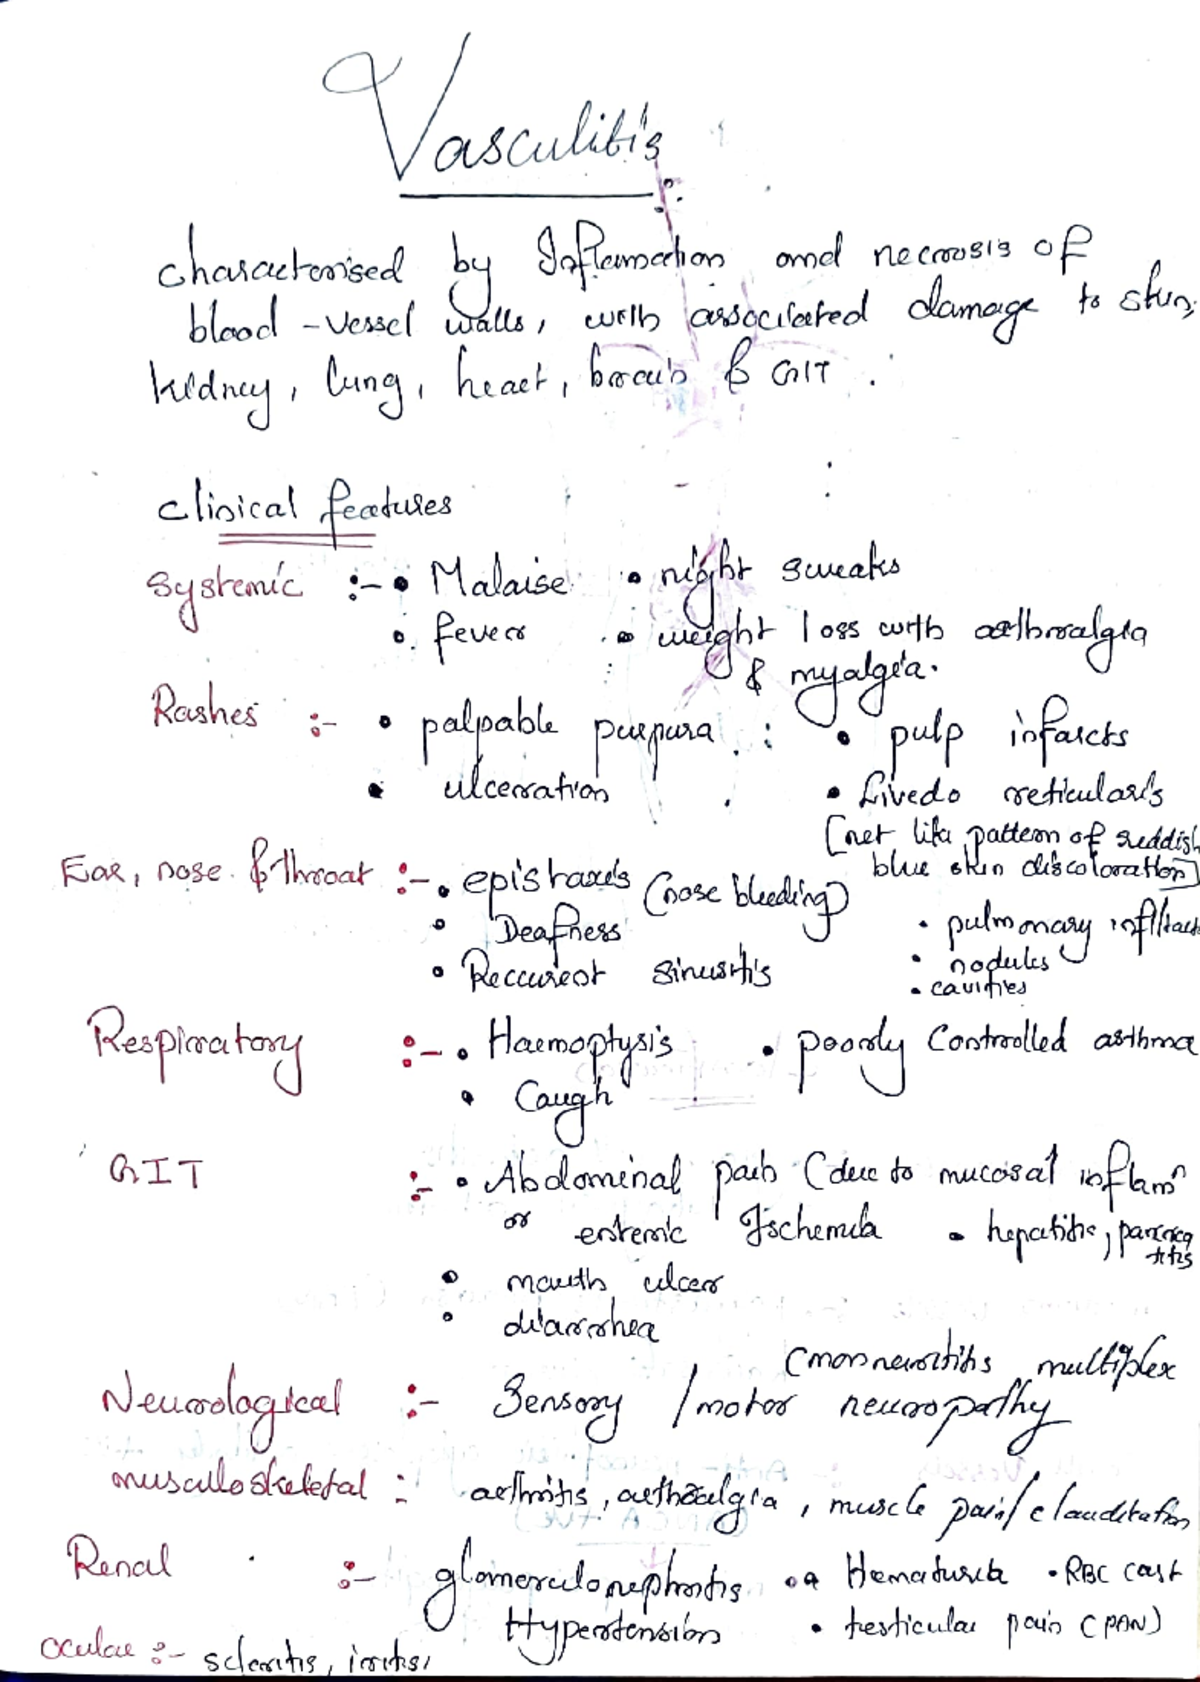 Vasculitis :-
characterised by Inflamation and necrosis of
blood - vessel walls, with associated damage to skin,
kidney, lung, heart, brain & GIT .
clinical features
systemic :- • Malaise • night sweats
• fever • weight loss with arthralgia
& myalgia.
Rashes :- • palpable purpura : • pulp infarcts
• ulceration • Livedo reticularis
(net like pattern of reddish
blue skin discoloration]
Ear, nose & throat :- • epistaxis (nose bleeding)
• Deafness • pulmonary infiltrat
• Reccurent sinusitis • nodules
• cavities
Respiratory :- • Haemoptysis • poorly Controlled asthma
• Caugh
GIT :- • Abdominal pain (due to mucosal inflamn
or enteric Ischemia • hepatitis, pancrea
titis
• mouth ulcer
• diarrhea
(mononeuritis multiplex
Neurological :- Sensory / motor neuropathy
musculoskeletal :- arthritis, arthralgia, muscle pain/claudication
Renal :- glomerulonephritis • Hematuria • RBC cast
Hypertension • testicular pain (PAN)
Ocular :- scleritis, iritis,